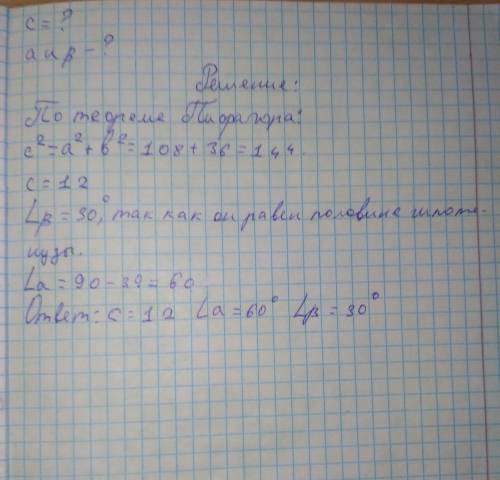 c = ?
α и β - ?
Решение:
По теореме Пифагора:
c² = a² + b² = 108 + 36 = 144.
c = 12
∠β = 30°, так как он равен половине гипоте-
нузы.
∠α = 90 - 30 = 60
Ответ: c = 12 ∠α = 60° ∠β = 30°